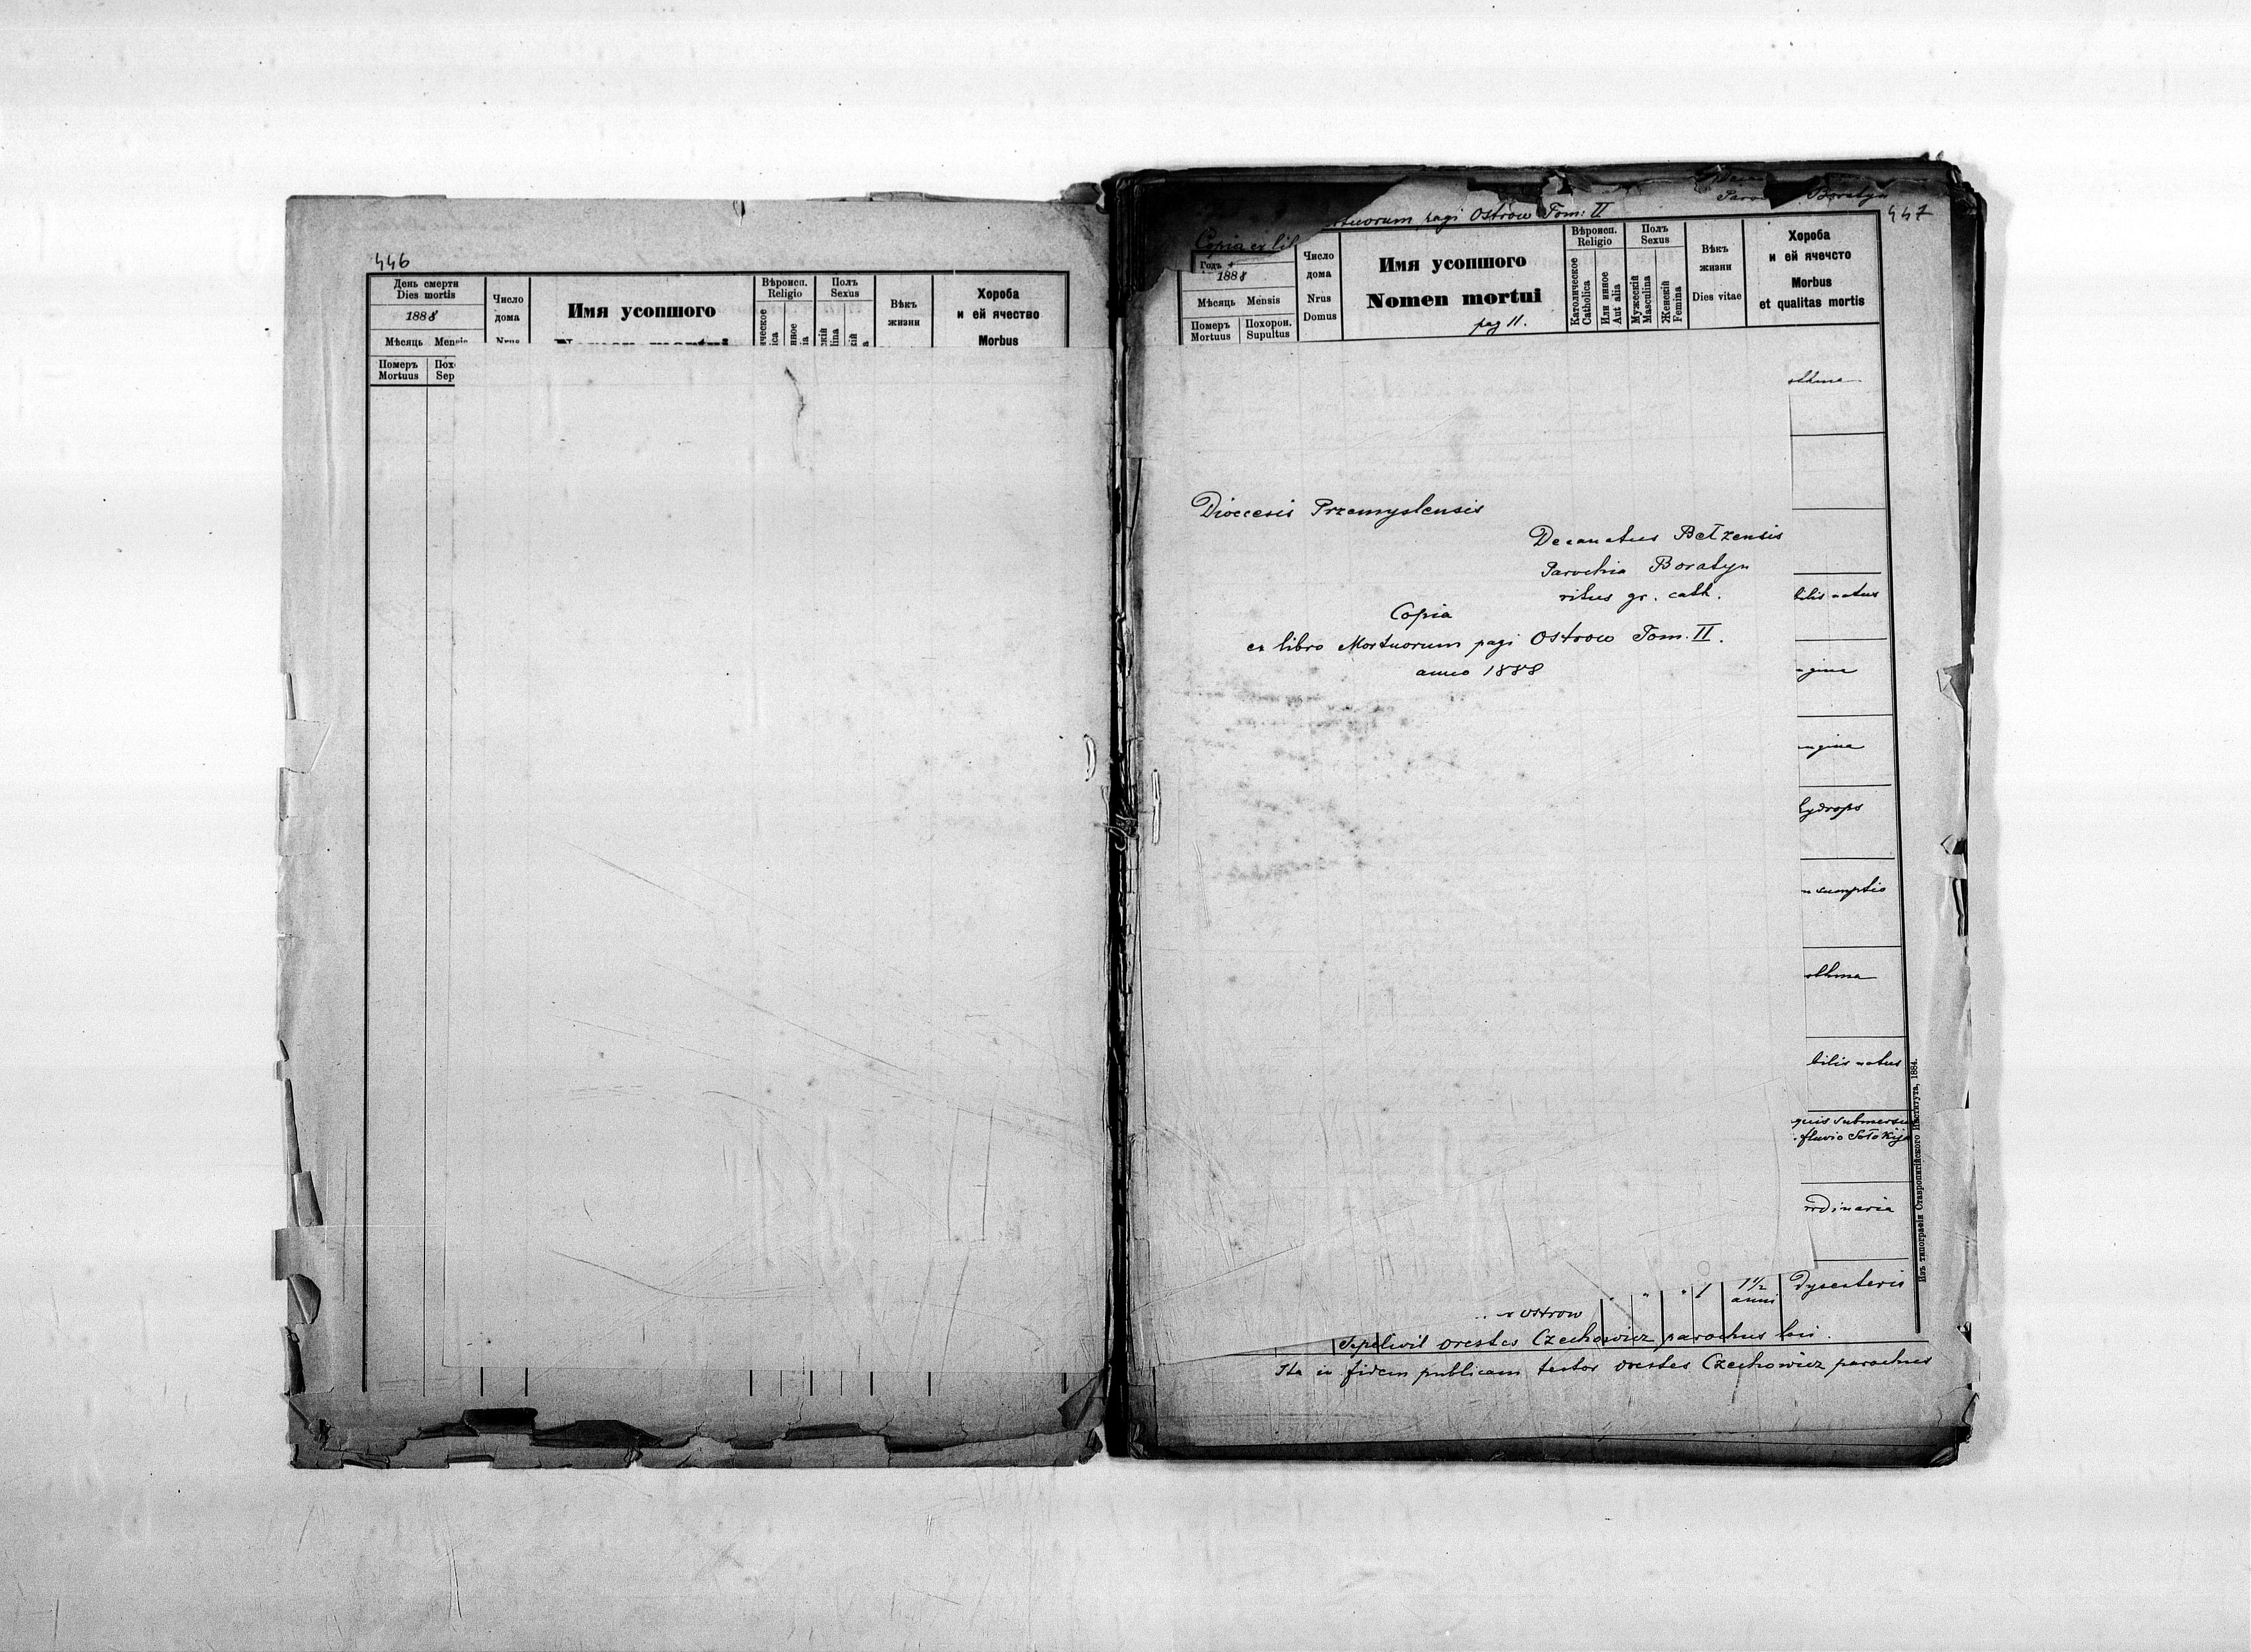 446
День смерти
Dies mortis
1888
Мѣсяць Mensis
Померъ
Mortuus
Пох
Sep
Число
дома
Имя усопшого
Вѣроисп.
Religio
Полъ
Sexus
Вѣкъ
жизни
Хороба
и ей ячество
Morbus
447
Parochia Boratyn
Copia ex lib
rtuorum pagi Ostrow Tom: II
Годъ
1888
Мѣсяць Mensis
Померъ
Mortuus
Похорон.
Supultus
Число
дома
Nrus
Domus
Имя усопшого
Nomen mortui
pag 11.
Вѣроисп.
Religio
Католическое
Catholica
Или инное
Aut alia
Полъ
Sexus
Мужескій
Masculina
Женскій
Femina
Вѣкъ
жизни
Dies vitae
Хороба
и ей ячечсто
Morbus
et qualitas mortis
sthma
Dioecesis Przemyslensis
Decanatus Bełzensis
Parochia Boratyn
ritus gr. cath.
Copia
ex libro Mortuorum pagi Ostrow Tom. II.
anno 1888
bilis natus
ngina
ngina
hydrops
nsumptio
sthma
bilis natus
quis submersus
fluvio Sołokija
rdinaria
1 1/2
anni
Dysenteris
Ostrow
Sepelivit Orestes Czechowicz parochus loci.
Ita in fidem publicam testor Orestes Czechowicz parochus
Изъ типографіи Ставропигійского Института, 1884.